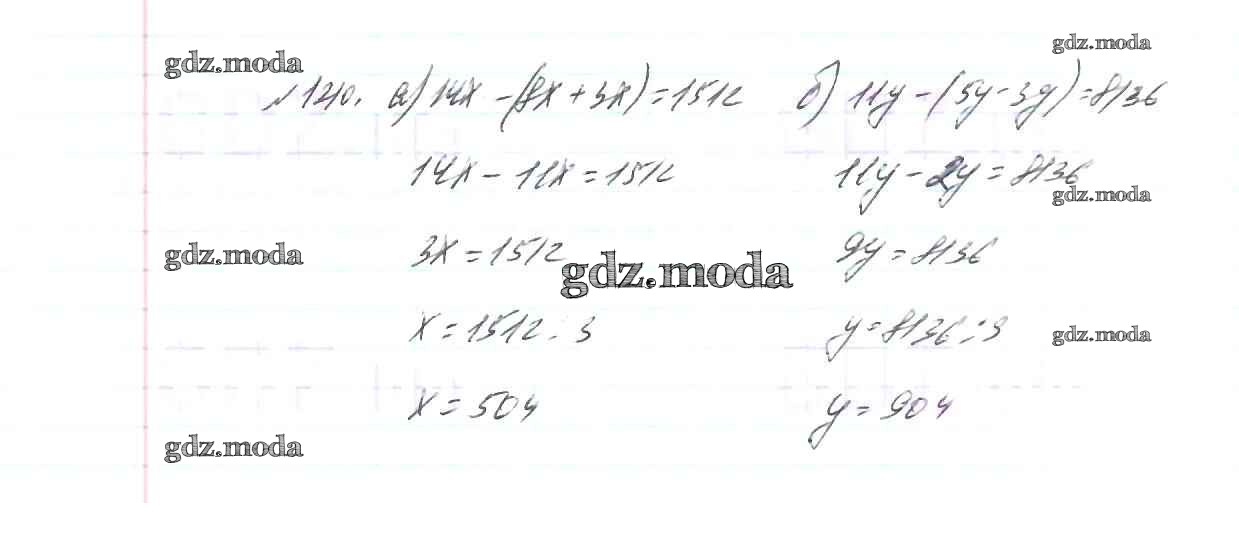 gdz.moda
gdz.moda
№1210. а) 14x - (8x + 3x) = 1512 б) 11y - (5y - 3y) = 8136
14x - 11x = 1512 11y - 2y = 8136
gdz.moda
3x = 1512 9y = 8136
gdz.moda
gdz.moda
x = 1512 : 3 y = 8136 : 9
gdz.moda
x = 504 y = 904
gdz.moda